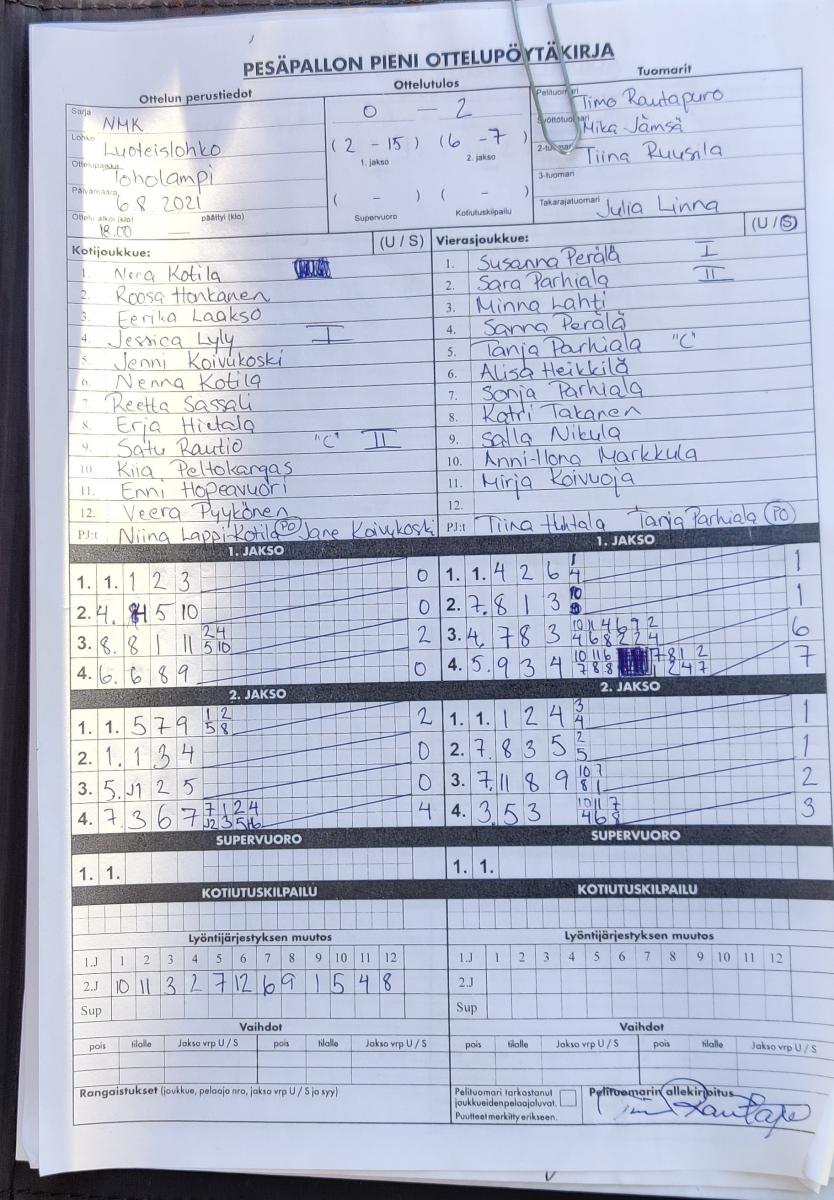 PESÄPALLON PIENI OTTELUPÖYTÄKIRJA
Ottelun perustiedot
Sarja NMK
Lohko Luoteislohko
Ottelupaikka Toholampi
Päivämäärä 6.8 2021
Ottelu alkoi (klo) 18.00 päättyi (klo) —
Ottelutulos
0 — 2
(2 - 15) (6 - 7)
1. jakso 2. jakso
( - ) ( - )
Supervuoro Kotiutuskilpailu
Tuomarit
Pelituomari Timo Rautapuro
Mika Jämsä
2-tuomari Tiina Ruusila
3-tuomari
Takarajatuomari Julia Linna
Kotijoukkue: (U / S)
1. Neea Kotila
2. Roosa Honkanen
3. Eerika Laakso
4. Jessica Lyly I
5. Jenni Koivukoski
6. Nenna Kotila
7. Reetta Sassali
8. Erja Hietala
9. Satu Rautio "C" II
10. Kiia Peltokangas
11. Enni Hopeavuori
12. Veera Pyykönen
PJ:t Niina Lappi-Kotila PO Jane Koivukoski
Vierasjoukkue: (U / S)
1. Susanna Perälä I
2. Sara Parhiala II
3. Minna Lahti
4. Sanna Perälä
5. Tanja Parhiala "C"
6. Alisa Heikkilä
7. Sonja Parhiala
8. Katri Takanen
9. Salla Nikula
10. Anni-Ilona Markkula
11. Mirja Koivuoja
12.
PJ:t Tiina Huhtala Tanja Parhiala PO
1. JAKSO
1. 1. 1 2 3 0
2. 4. 4 5 10 0
3. 8. 8 1 11 2 4 2
5 10
4. 6. 6 8 9 0
2. JAKSO
1. 1. 5 7 9 1 2 2
5 8
2. 1. 1 3 4 0
3. 5. J1 2 5 0
4. 7. 3 6 7 7 1 2 4 4
J2 3 5 J6
SUPERVUORO
1. 1.
KOTIUTUSKILPAILU
1. JAKSO
1. 1. 4 2 6 1 1
4
2. 7. 8 1 3 10 1
3. 4. 7 8 3 10 11 4 6 9 2 6
4 6 8 2 2 4
4. 5. 9 3 4 10 11 6 7 8 1 2 7
7 8 8 1 2 4 7
2. JAKSO
1. 1. 1 2 4 3 1
4
2. 7. 8 3 5 2 1
5
3. 7. 11 8 9 10 7 2
8 1
4. 3. 5 3 10 11 7 3
4 6 8
SUPERVUORO
1. 1.
KOTIUTUSKILPAILU
Lyöntijärjestyksen muutos
1.J 1 2 3 4 5 6 7 8 9 10 11 12
2.J 10 11 3 2 7 12 6 9 1 5 4 8
Sup
Vaihdot
pois tilalle Jakso vrp U / S pois tilalle Jakso vrp U / S
Rangaistukset (joukkue, pelaaja nro, jakso vrp U / S ja syy)
Lyöntijärjestyksen muutos
1.J 1 2 3 4 5 6 7 8 9 10 11 12
2.J
Sup
Vaihdot
pois tilalle Jakso vrp U / S pois tilalle Jakso vrp U / S
Pelituomari tarkastanut
joukkueiden pelaajaluvat.
Puutteet merkitty erikseen.
Pelituomarin allekirjoitus